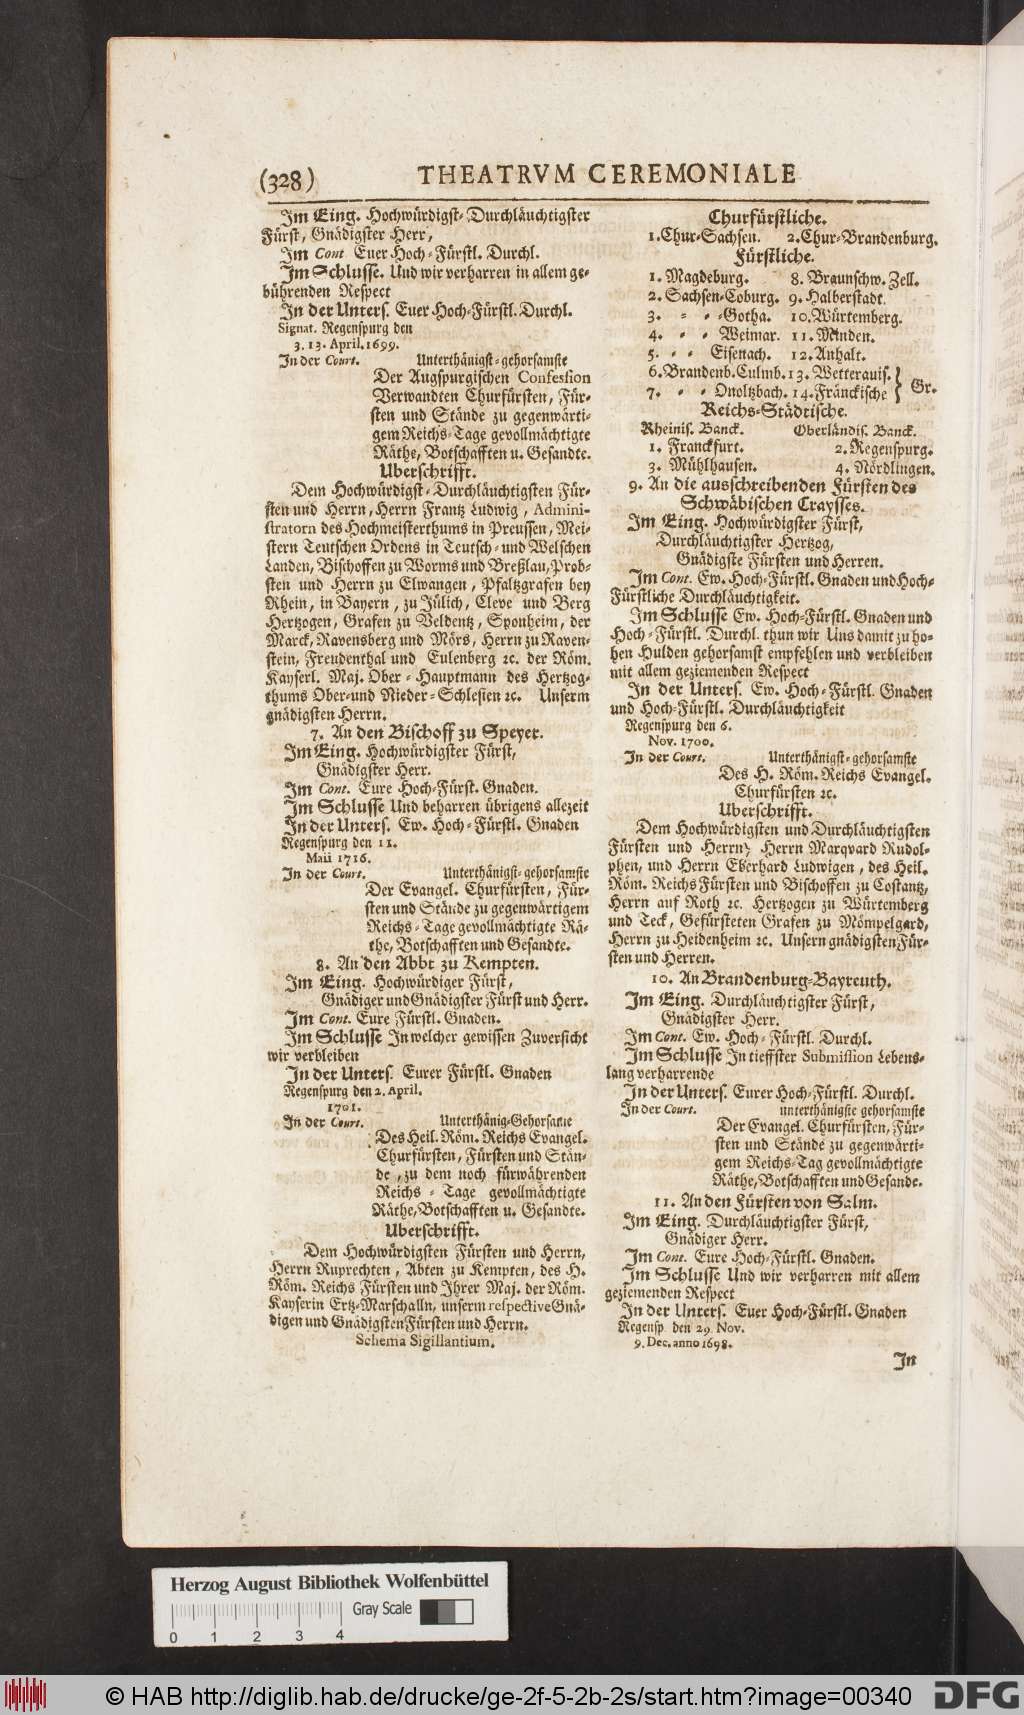 (328) THEATRVM CEREMONIALE
Im Eing. Hochwürdigst-Durchläuchtigster
Fürst, Gnädigster Herr,
Im Cont. Euer Hoch-Fürstl. Durchl.
Im Schlusse. Und wir verharren in allem ge-
bührenden Respect
In der Unters. Euer Hoch-Fürstl. Durchl.
Signat. Regenspurg den
3. 13. April. 1699.
In der Court. Unterthänigst-gehorsamste
Der Augspurgischen Confession
Verwandten Churfürsten, Für-
sten und Stände zu gegenwärti-
gem Reichs-Tage gevollmächtigte
Räthe, Botschafften u. Gesandte.
Uberschrifft.
Dem Hochwürdigst-Durchläuchtigsten Für-
sten und Herrn, Herrn Frantz Ludwig, Admini-
stratorn des Hochmeisterthums in Preussen, Mei-
stern Teutschen Ordens in Teutsch- und Welschen
Landen, Bischoffen zu Worms und Breßlau, Prob-
sten und Herrn zu Elwangen, Pfaltzgrafen bey
Rhein, in Bayern, zu Jülich, Cleve und Berg
Hertzogen, Grafen zu Veldentz, Sponheim, der
Marck, Ravensberg und Mörs, Herrn zu Raven-
stein, Freudenthal und Eulenberg ꝛc. der Röm.
Kayserl. Maj. Ober-Hauptmann des Hertzog-
thums Ober-und Nieder-Schlesien ꝛc. Unserm
gnädigsten Herrn.
7. An den Bischoff zu Speyer.
Im Eing. Hochwürdigster Fürst,
Gnädigster Herr.
Im Cont. Eure Hoch-Fürst. Gnaden.
Im Schlusse Und beharren übrigens allezeit
In der Unters. Ew. Hoch-Fürstl. Gnaden
Regenspurg den 11.
Maii 1716.
In der Court. Unterthänigst-gehorsamste
Der Evangel. Churfürsten, Für-
sten und Stände zu gegenwärtigem
Reichs-Tage gevollmächtigte Rä-
the, Botschafften und Gesandte.
8. An den Abbt zu Kempten.
Im Eing. Hochwürdiger Fürst,
Gnädiger und Gnädigster Fürst und Herr.
Im Cont. Eure Fürstl. Gnaden.
Im Schlusse In welcher gewissen Zuversicht
wir verbleiben
In der Unters. Eurer Fürstl. Gnaden
Regenspurg den 2. April.
1701.
In der Court. Unterthänig-Gehorsame
Des Heil. Röm. Reichs Evangel.
Churfürsten, Fürsten und Stän-
de, zu dem noch fürwährenden
Reichs-Tage gevollmächtigte
Räthe, Botschafften u. Gesandte.
Uberschrifft.
Dem Hochwürdigsten Fürsten und Herrn,
Herrn Ruprechten, Abten zu Kempten, des H.
Röm. Reichs Fürsten und Ihrer Maj. der Röm.
Kayserin Ertz-Marschalln, unserm respective Gnä-
digen und Gnädigsten Fürsten und Herrn.
Schema Sigillantium.
Churfürstliche.
1. Chur-Sachsen. 2. Chur-Brandenburg.
Fürstliche.
1. Magdeburg. 8. Braunschw. Zell.
2. Sachsen-Coburg. 9. Halberstadt.
3. - - -Gotha. 10. Würtemberg.
4. - - Weimar. 11. Minden.
5. - - Eisenach. 12. Anhalt.
6. Brandenb. Culmb. 13. Wetterauis. } Gr.
7. - - Onoltzbach. 14. Fränckische
Reichs-Städtische.
Rheinis. Banck. Oberländis. Banck.
1. Franckfurt. 2. Regenspurg.
3. Mühlhausen. 4. Nördlingen.
9. An die ausschreibenden Fürsten des
Schwäbischen Craysses.
Im Eing. Hochwürdigster Fürst,
Durchläuchtigster Hertzog,
Gnädigste Fürsten und Herren.
Im Cont. Ew. Hoch-Fürstl. Gnaden und Hoch-
Fürstliche Durchläuchtigkeit.
Im Schlusse Ew. Hoch-Fürstl. Gnaden und
Hoch-Fürstl. Durchl. thun wir Uns damit zu ho-
hen Hulden gehorsamst empfehlen und verbleiben
mit allem geziemenden Respect
In der Unters. Ew. Hoch-Fürstl. Gnaden
und Hoch-Fürstl. Durchläuchtigkeit
Regenspurg den 6.
Nov. 1700.
In der Court. Unterthänigst-gehorsamste
Des H. Röm. Reichs Evangel.
Churfürsten ꝛc.
Uberschrifft.
Dem Hochwürdigsten und Durchläuchtigsten
Fürsten und Herrn, Herrn Marqvard Rudol-
phen, und Herrn Eberhard Ludwigen, des Heil.
Röm. Reichs Fürsten und Bischoffen zu Costantz,
Herrn auf Roth ꝛc. Hertzogen zu Würtemberg
und Teck, Gefürsteten Grafen zu Mömpelgard,
Herrn zu Heidenheim ꝛc. Unsern gnädigsten Für-
sten und Herren.
10. An Brandenburg-Bayreuth.
Im Eing. Durchläuchtigster Fürst,
Gnädigster Herr.
Im Cont. Ew. Hoch-Fürstl. Durchl.
Im Schlusse In tieffster Submission Lebens-
lang verharrende
In der Unters. Eurer Hoch-Fürstl. Durchl.
In der Court. unterthänigste gehorsamste
Der Evangel. Churfürsten, Für-
sten und Stände zu gegenwärti-
gem Reichs-Tag gevollmächtigte
Räthe, Botschafften und Gesande.
11. An den Fürsten von Salm.
Im Eing. Durchläuchtigster Fürst,
Gnädiger Herr.
Im Cont. Eure Hoch-Fürstl. Gnaden.
Im Schlusse Und wir verharren mit allem
geziemenden Respect
In der Unters. Euer Hoch-Fürstl. Gnaden
Regensp. den 29. Nov.
9. Dec. anno 1698.
In
Herzog August Bibliothek Wolfenbüttel
Gray Scale
0 1 2 3 4
© HAB http://diglib.hab.de/drucke/ge-2f-5-2b-2s/start.htm?image=00340 DFG